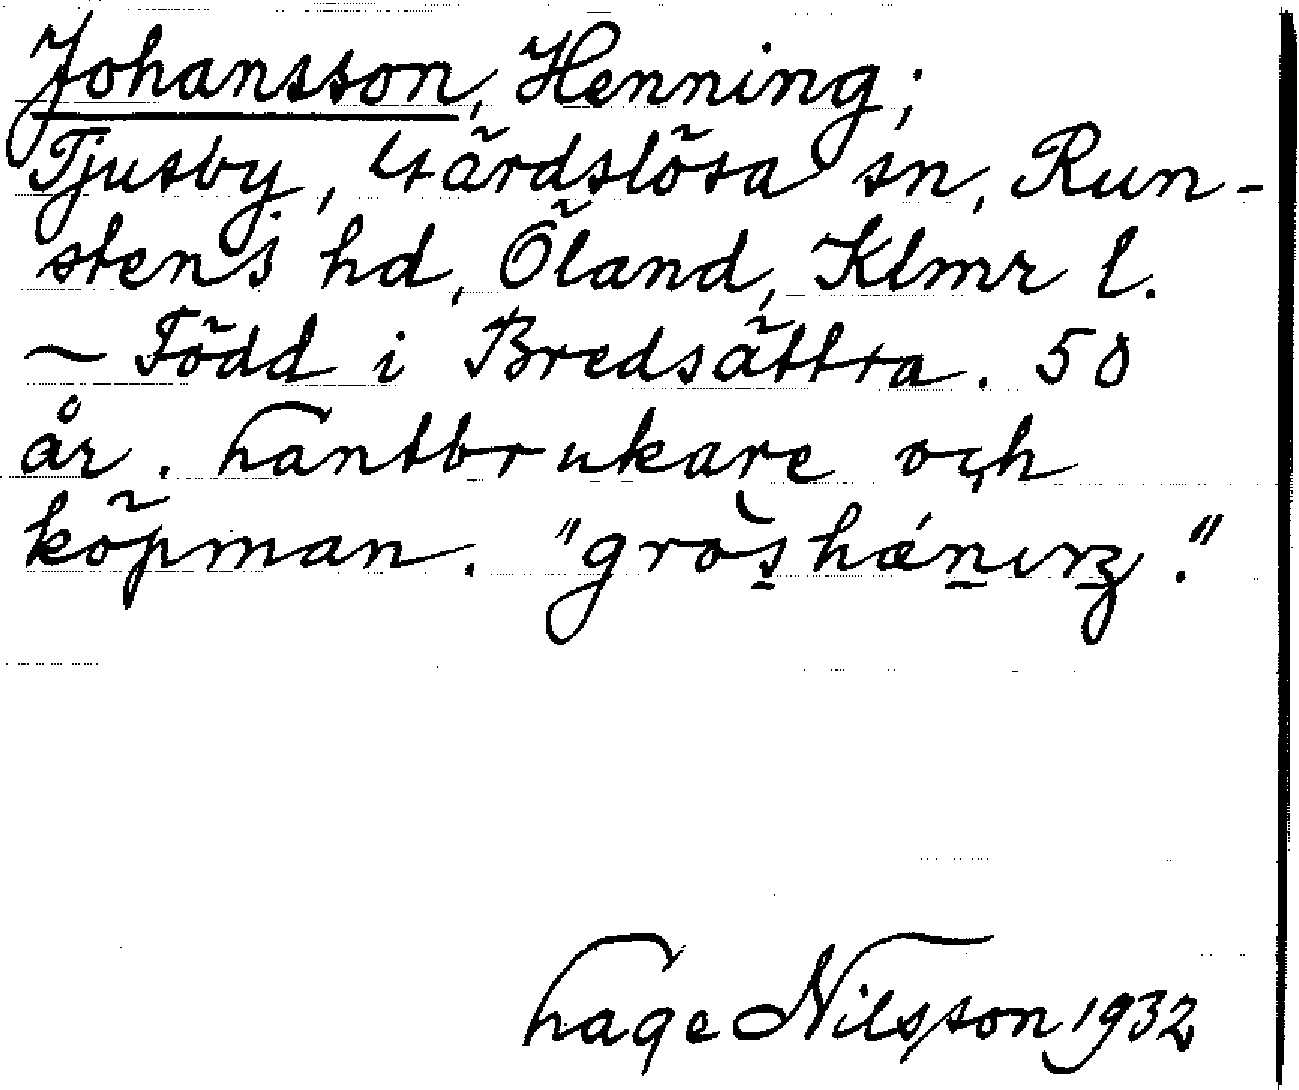 Johansson, Henning;
Tjusby, Gärdslösa sn, Run-
stens hd, Öland, Klmr l.
— Född i Bredsättra. 58
år. Lantbrukare och
köpman. "
Lage Nilsson 1932